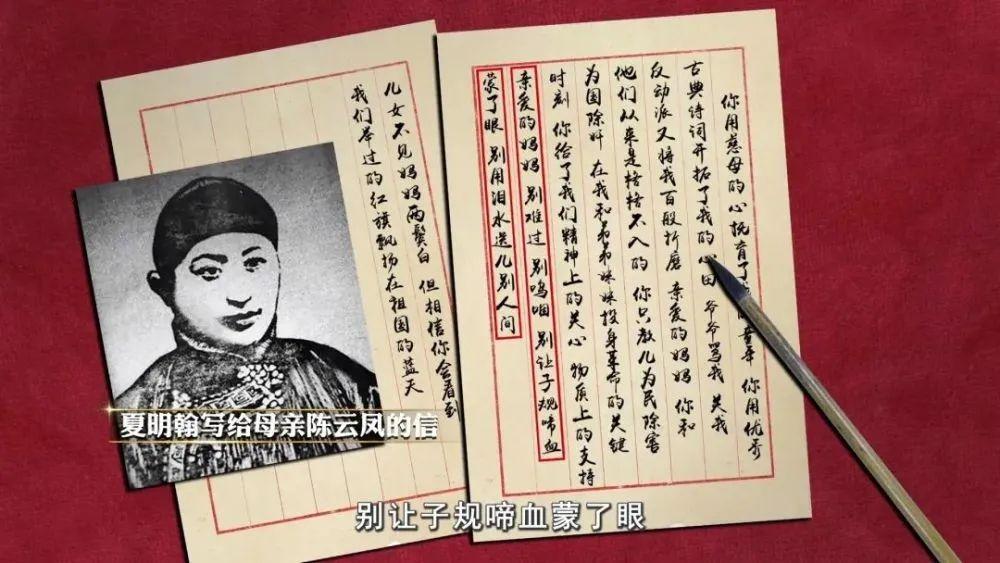 你用慈母的心抚育了童年 你用优秀
古典诗词开拓了我的心田 爷爷骂我 关我
反动派又将我百般折磨 亲爱的妈妈 你和
他们从来是格格不入的 你只教儿为民除害
为国除奸 在我和弟弟妹妹投身革命的关键
时刻 你给了我们精神上的关心 物质上的支持
亲爱的妈妈 别难过 别呜咽 别让子规啼血
蒙了眼 别用泪水送儿别人间
儿女不见妈妈两鬓白 但相信你会看到
我们举过的红旗飘扬在祖国的蓝天
夏明翰写给母亲陈云凤的信
别让子规啼血蒙了眼